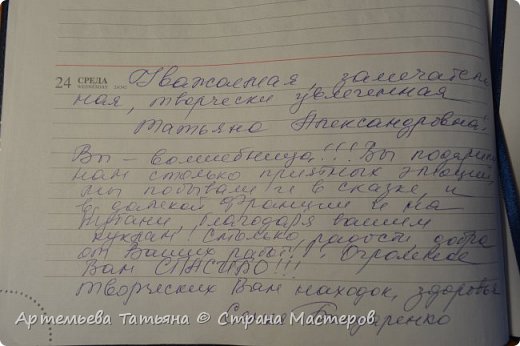 24 СРЕДА
WEDNESDAY
Уважаемая, замечатель
ная, творчески увлеченная
Татьяна Александровна!
Вы – волшебница!!! Вы подарили
нам столько приятных эмоций,
мы побывали и в сказке, и
в далекой Франции
благодаря вашим
куклам! Столько радости, добра
от Ваших работ! Огромное
Вам СПАСИБО!!!
Творческих Вам находок, здоровья
Семья
Артемьева Татьяна © Страна Мастеров